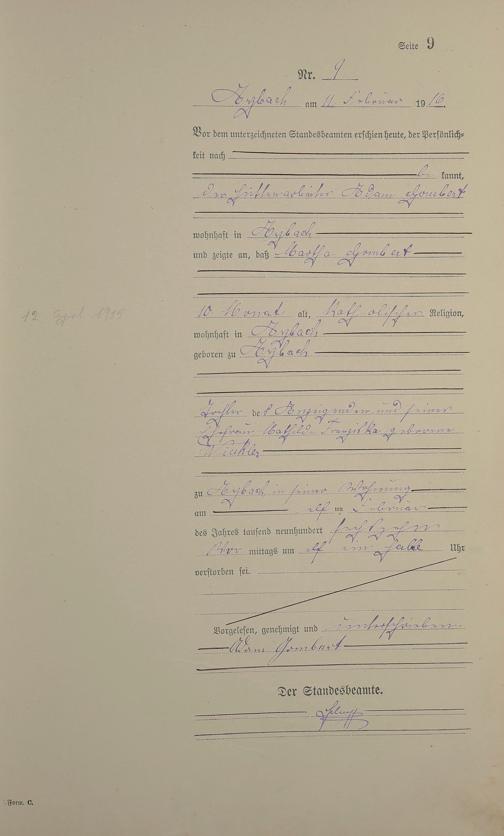 Seite 9
Nr. 9
Aybach am 11 Februar 1916.
Vor dem unterzeichneten Standesbeamten erschien heute, der Persönlich-
keit nach
be kannt,
der Hüttenarbeiter Adam Gombert
wohnhaft in Aybach
und zeigte an, daß Martha Gombert
12 April 1915
10 Monat alt, katholischer Religion,
wohnhaft in Aybach
geboren zu Aybach
Tochter des Anzeigenden und seiner
Ehefrau Mathilde Franziska geborene
Winkler
zu Aybach in seiner Wohnung
am elf ten Februar
des Jahres tausend neunhundert sechszehn
Vor mittags um elf ein halb Uhr
verstorben sei.
Vorgelesen, genehmigt und unterschrieben
Adam Gombert
Der Standesbeamte.
Form. C.